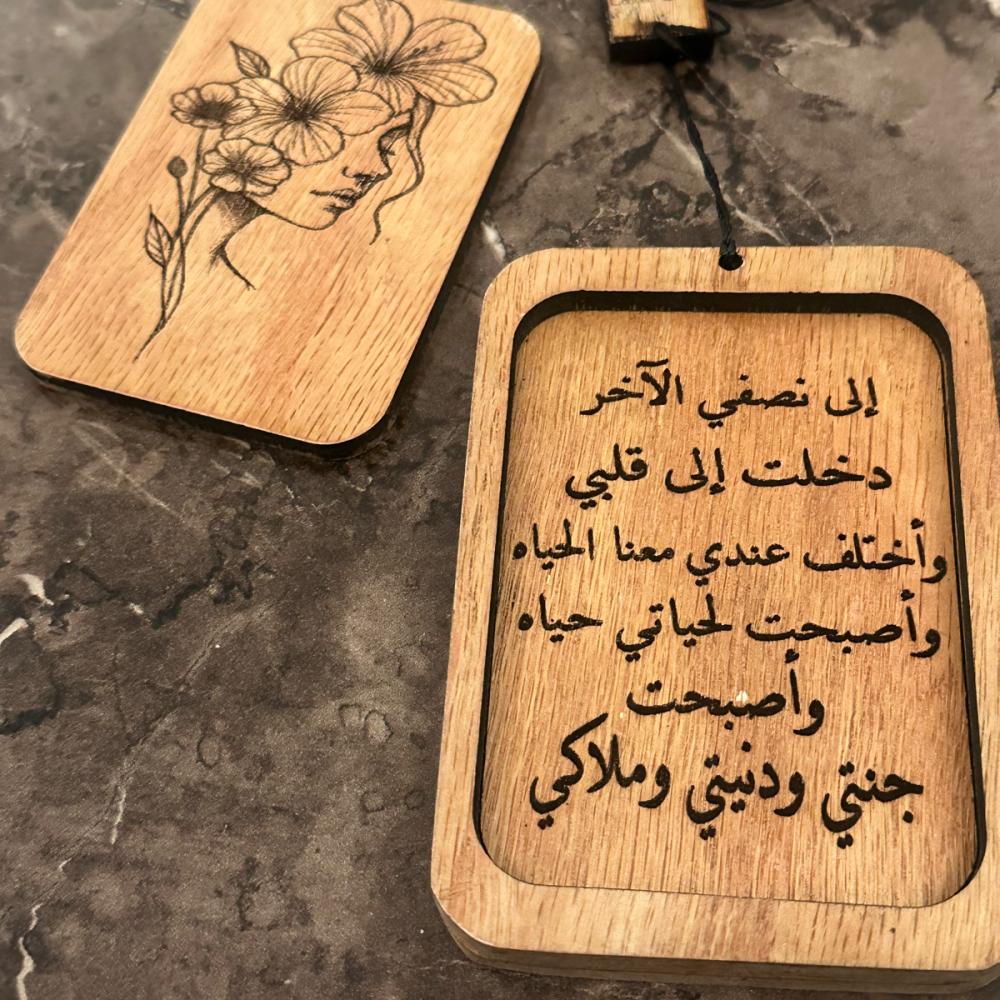 إلى نصفي الآخر
دخلت إلى قلبي
وأختلف عندي معنا الحياه
وأصبحت لحياتي حياه
وأصبحت
جنتي ودنيتي وملاكي